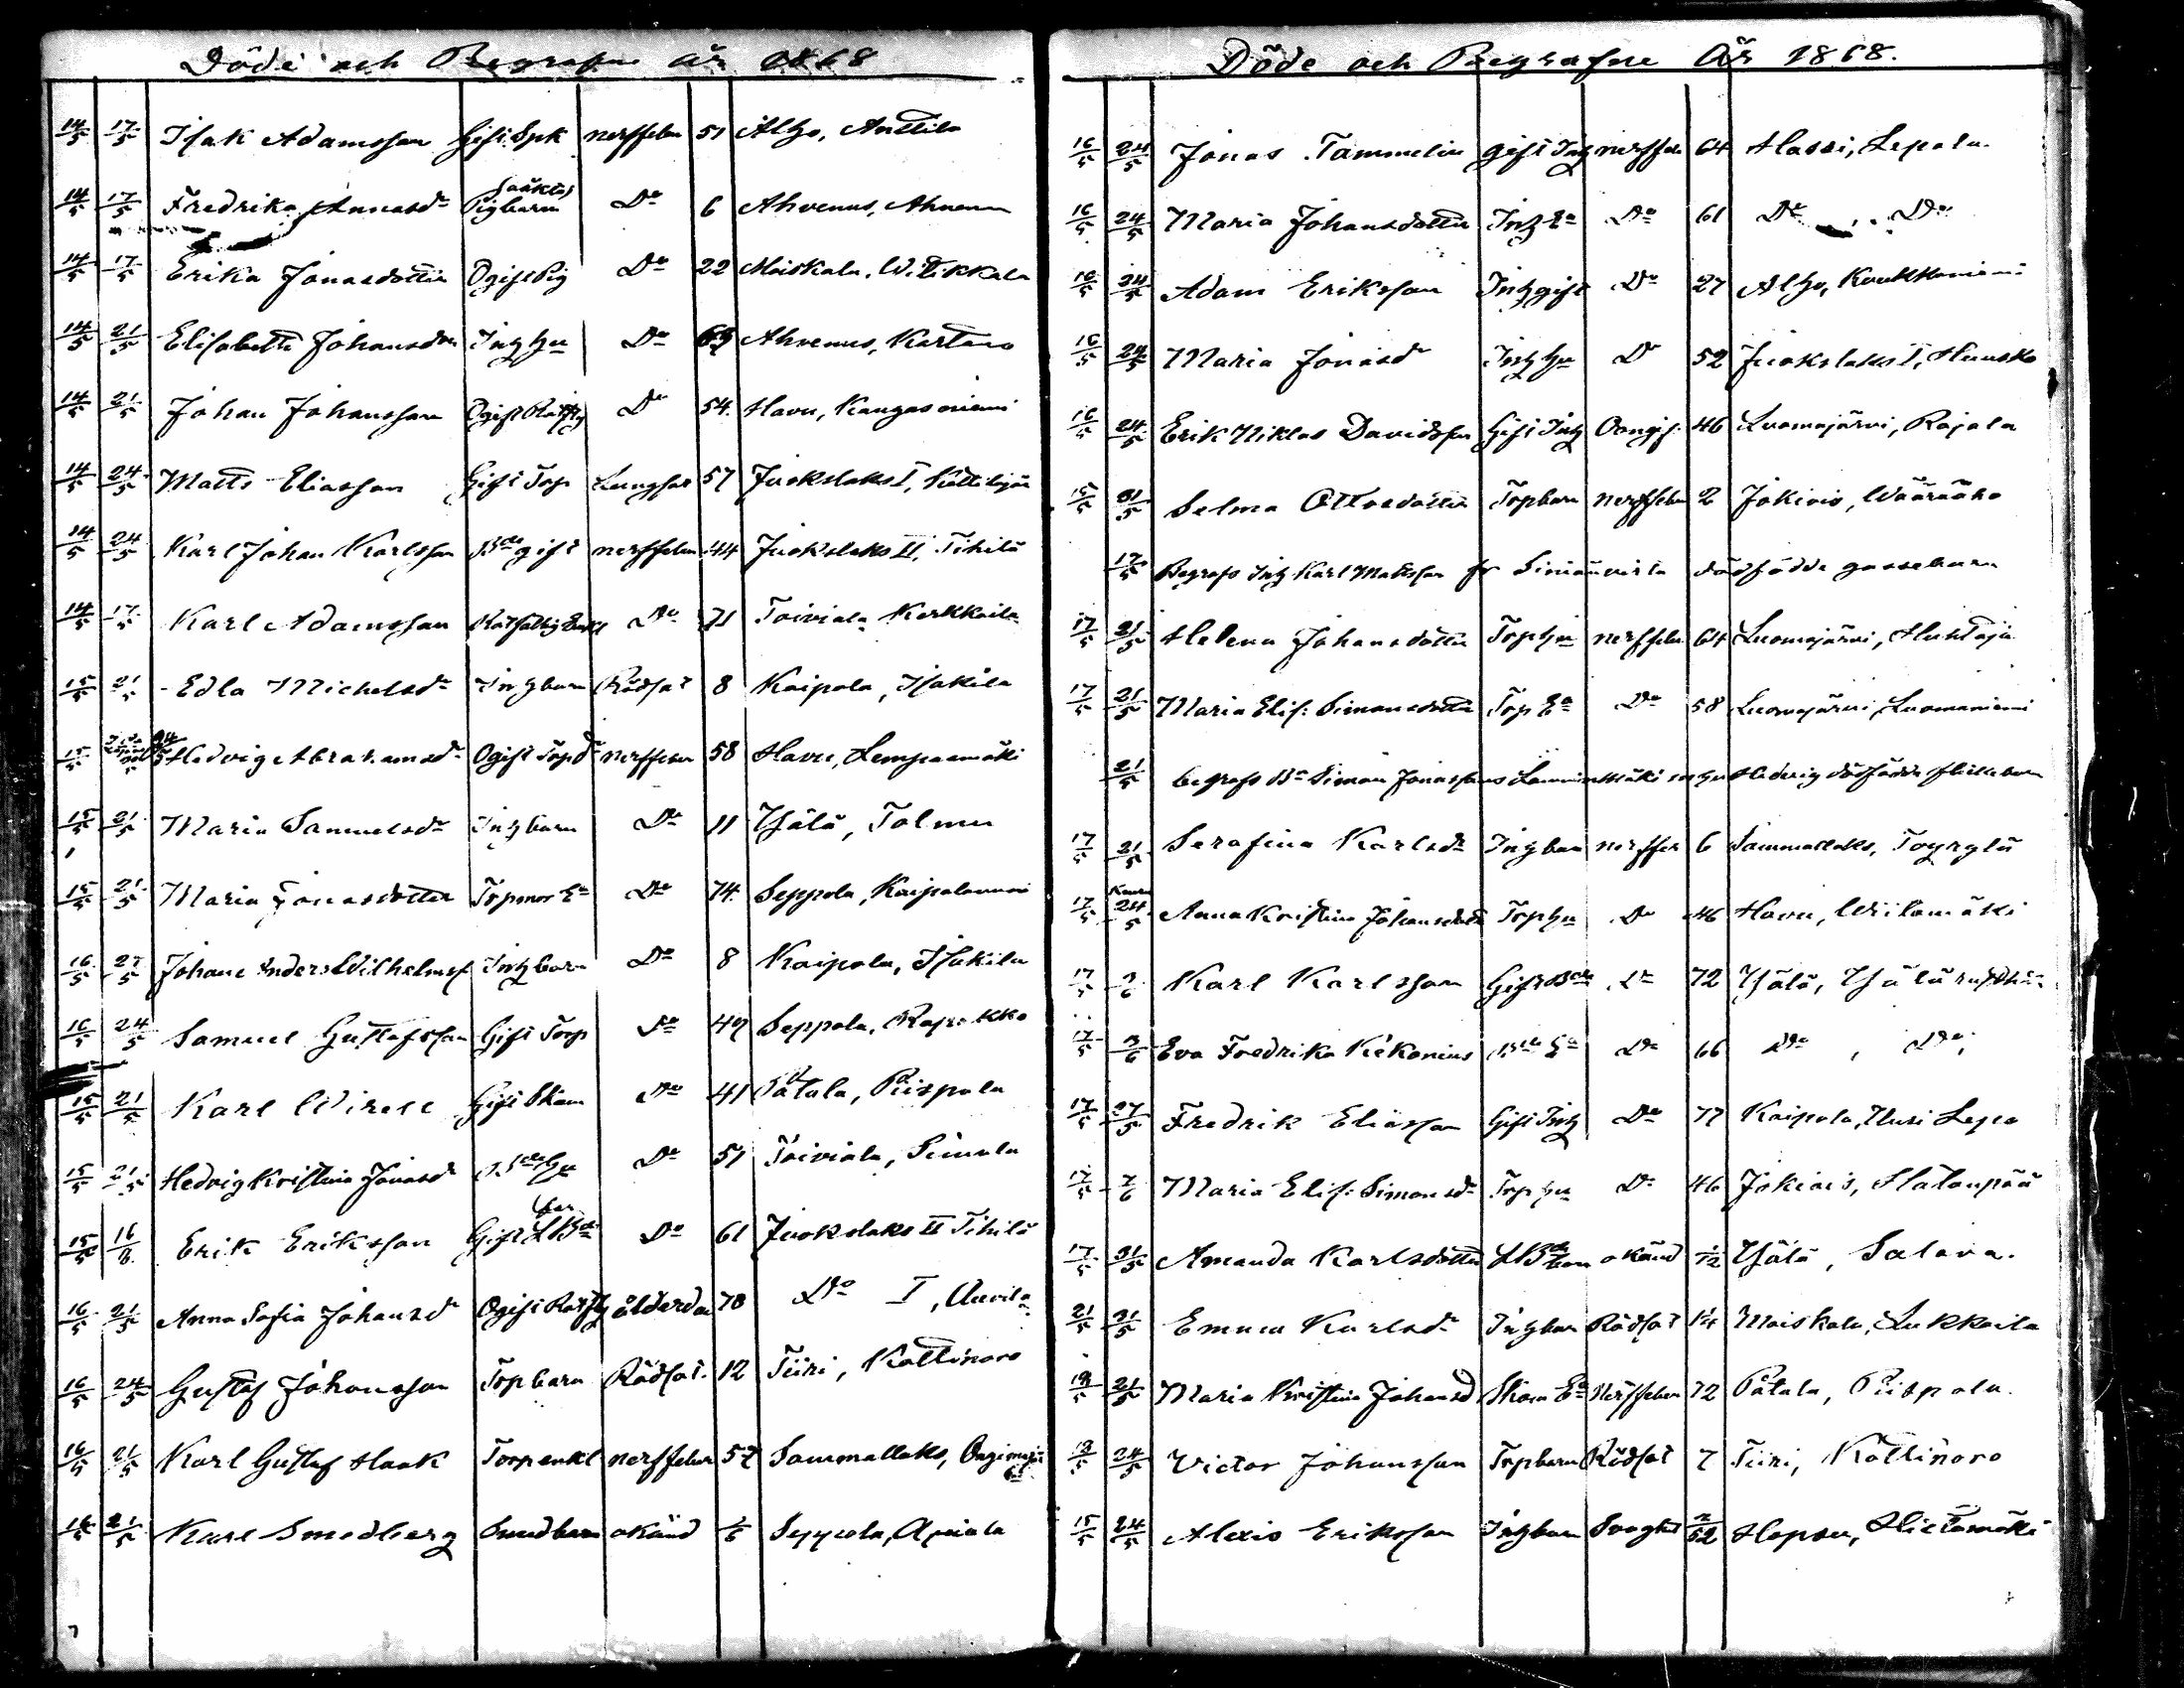 Döde och Begrafne År 1868
14/5 17/5 Isak Adamsson Gift Spk nerffeber 51 Alho, Anttila
14/5 17/5 Fredrika Annasdr Pigbarn Do 6 Ahvenus, Ahvenus
14/5 17/5 Erika Jonasdotter Ogift Pig Do 22 Maiskala, Witikkala
14/5 21/5 Elisabeth Johansdr Inhhu Do Ahvenus, Kartano
14/5 21/5 Johan Johansson Do 54 Havu, Kangasniemi
14/5 24/5 Matts Eliasson Gift Torp Lungsot 57 Juokslaks I,
14/5 24/5 Karl Johan Karlsson Bde gift nerffeber 44 Juokslaks II, Tihilä
14/5 17/5 Karl Adamsson Do 71 Toiviala, Kerkkaila
15/5 21/5 Edla Michelsdr Inhbarn Rödsot 8 Kaipola, Isakila
15/5 Hedvig Abrahamsdr Ogift Torpdr nerffeber 58 Havu, Lempaamäki
15/5 21/5 Maria Samuelsdr Inhbarn Do 11 Hjälä, Tolmu
15/5 21/5 Maria Jonasdotter Torpmor Ea Do 74 Seppola, Kaipolanvuori
16/5 27/5 Johan Anders Wilhelmsf Inhbarn Do 8 Kaipola, Isakila
16/5 24/5 Samuel Gustafsson Gift Torp Do 49 Seppola, Rapakko
15/5 21/5 Karl Wirell Gift Skom Do 41 Patala, Piispala
15/5 21/5 Hedvig Kristina Jonasd Bdehu Do 51 Toiviala, Simula
15/5 16/6 Erik Eriksson Gift LBde far Do 61 Juokslaks II Tihilä
16/5 21/5 Anna Sofia Johansdr Ogift ålderdom 78 Do I, Auvila
16/5 24/5 Gustaf Johansson Torpbarn Rödsot 12 Tiiri, Kottinoro
16/5 21/5 Karl Gustaf Haak Torpenkl nerffeber 57 Sammallaks,
16/5 21/5 Karl Smedberg Smedbarn okänd Seppola, Apiala
Döde och Begrafne År 1868.
16/5 24/5 Jonas Tammelin gift Inh nerffeber 64 Hassi, Lepola
16/5 24/5 Maria Johansdotter Inh Ea Do 61 Do, Do
16/5 24/5 Adam Eriksson Inh gift Do 27 Alho, Kaukkoniemi
16/5 24/5 Maria Jonasdr Inhhu Do 52 Juokslaks I, Huusko
16/5 24/5 Erik Niklas Davidsson Gift Inh Oangif. 46 Luomajärvi, Rajala
15/5 31/5 Selma Ottosdotter Torpbarn nerffeber 2 Jokiois, Wääräaho
17/5 Begrofs Inh Karl Mattsson fr Siniänvirta dödfödde gossebarn
17/5 21/5 Helena Johansdotter Torphu nerffeber 64 Luomajärvi, Huhtaja
17/5 21/5 Maria Elis: Simonsdotter Torp Ea Do 58 Luomajärvi, Luomaniemi
21/5 begrofs Bde Simon Jonassons Lamminmäki hu Hedvig dödfödda flickebarn
17/5 21/5 Serafina Karlsdr Inhbarn nerffeber 6 Sammallaks, Toyrylä
17/5 24/5 Anna Kristina Johansdotter Torphu Do 46 Havu, Wiitamäki
17/5 7/6 Karl Karlsson Gift Bde Do 72 Hjälä,
17/5 7/6 Eva Fredrika Kekonius Bde Ea Do 66 Do, Do,
17/5 27/5 Fredrik Eliasson Gift Inh Do 77 Kaipola, Uusi Lepo
17/5 7/6 Maria Elis: Simonsdr Torphu Do 46 Jokiois, Hatanpää
17/5 31/5 Amanda Karlsdotter LBdebarn okänd 1/12 Hjälä, Salava.
21/5 21/5 Emma Karlsdr Inhbarn Rödsot Maiskala, Lukkoila
18/5 21/5 Maria Kristina Johansd Skom Ea Nerffeber 72 Patala, Piispala
18/5 24/5 Victor Johansson Torpbarn Rödsot 7 Tiiri, Kottinoro
15/5 24/5 Alexis Eriksson Inhbarn Svaghet 2/52 Hopsu, Hietamäki